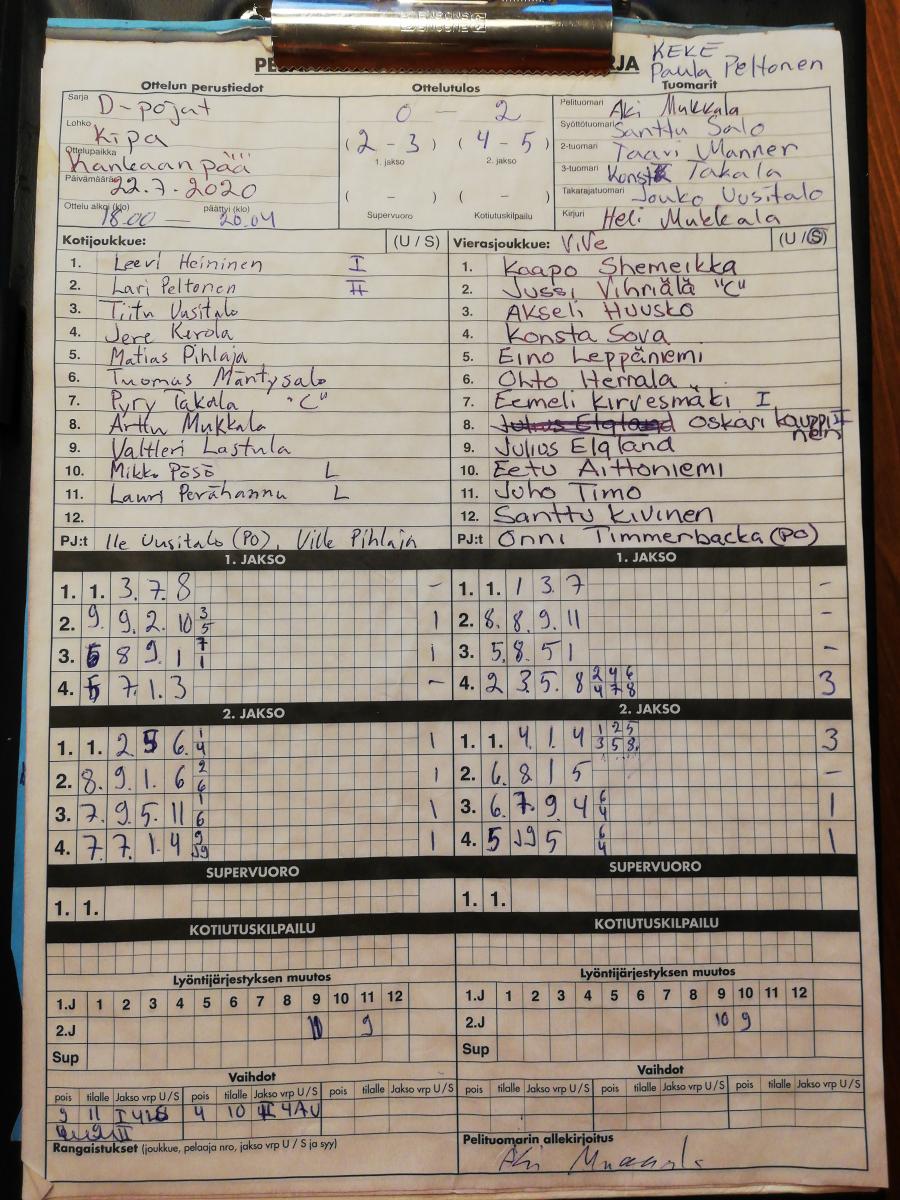 KEKE
Paula Peltonen
Ottelun perustiedot
Ottelutulos
Tuomarit
Sarja D-pojat
Lohko Kipa
Ottelupaikka Kankaanpää
Päivämäärä 22.7.2020
Ottelu alkoi (klo) 18.00 — päättyi (klo) 20.04
0 — 2
(2 - 3) (4 - 5)
1. jakso 2. jakso
( - ) ( - )
Supervuoro Kotiutuskilpailu
Pelituomari Aki Mukkala
Syöttötuomari Santtu Salo
2-tuomari Taavi Manner
3-tuomari Takala
Takarajatuomari Jouko Uusitalo
Kirjuri Heli Mukkala
Kotijoukkue: (U / S)
1. Leevi Heininen I
2. Lari Peltonen II
3. Tiitu Uusitalo
4. Jere Kerola
5. Matias Pihlaja
6. Tuomas Mäntysalo
7. Pyry Takala "C"
8. Arttu Mukkala
9. Valtteri Lastula
10. Mikko Pösö L
11. Lauri Perähannu L
12.
PJ:t Ile Uusitalo (PO), Ville Pihlaja
Vierasjoukkue: ViVe (U / S)
1. Kaapo Shemeikka
2. Jussi Vihriälä "C"
3. Akseli Huusko
4. Konsta Sova
5. Eino Leppäniemi
6. Ohto Herrala
7. Eemeli Kirvesmäki I
8. Oskari Kauppinen II
9. Julius Elgland
10. Eetu Aittoniemi
11. Juho Timo
12. Santtu Kivinen
PJ:t Onni Timmerbacka (PO)
1. JAKSO
1. 1. 3. 7. 8 -
2. 9. 9. 2. 10 3 5 1
3. 8 9. 1 7 1 1
4. 7. 1. 3 -
1. JAKSO
1. 1. 1 3. 7 -
2. 8. 8. 9. 11 -
3. 5. 8. 5 1 -
4. 2 3. 5. 8 2 4 6 4 7 8 3
2. JAKSO
1. 1. 2 5 6. 1 4 1
2. 8. 9. 1. 6 2 6 1
3. 7. 9. 5. 11 1 6 1
4. 7. 7. 1. 4 1
2. JAKSO
1. 1. 4. 1. 4 1 2 5 3 5 8. 3
2. 6. 8 1 5 -
3. 6. 7. 9. 4 6 4 1
4. 5 5 6 4 1
SUPERVUORO
1. 1.
SUPERVUORO
1. 1.
KOTIUTUSKILPAILU
KOTIUTUSKILPAILU
Lyöntijärjestyksen muutos
1.J 1 2 3 4 5 6 7 8 9 10 11 12
2.J 10 9
Sup
Lyöntijärjestyksen muutos
1.J 1 2 3 4 5 6 7 8 9 10 11 12
2.J 10 9
Sup
Vaihdot
pois tilalle Jakso vrp U / S pois tilalle Jakso vrp U / S pois tilalle Jakso vrp U / S
9 11 4 10
Vaihdot
pois tilalle Jakso vrp U / S pois tilalle Jakso vrp U / S pois tilalle Jakso vrp U / S
Rangaistukset (joukkue, pelaaja nro, jakso vrp U / S ja syy)
Pelituomarin allekirjoitus
Aki Mukkala